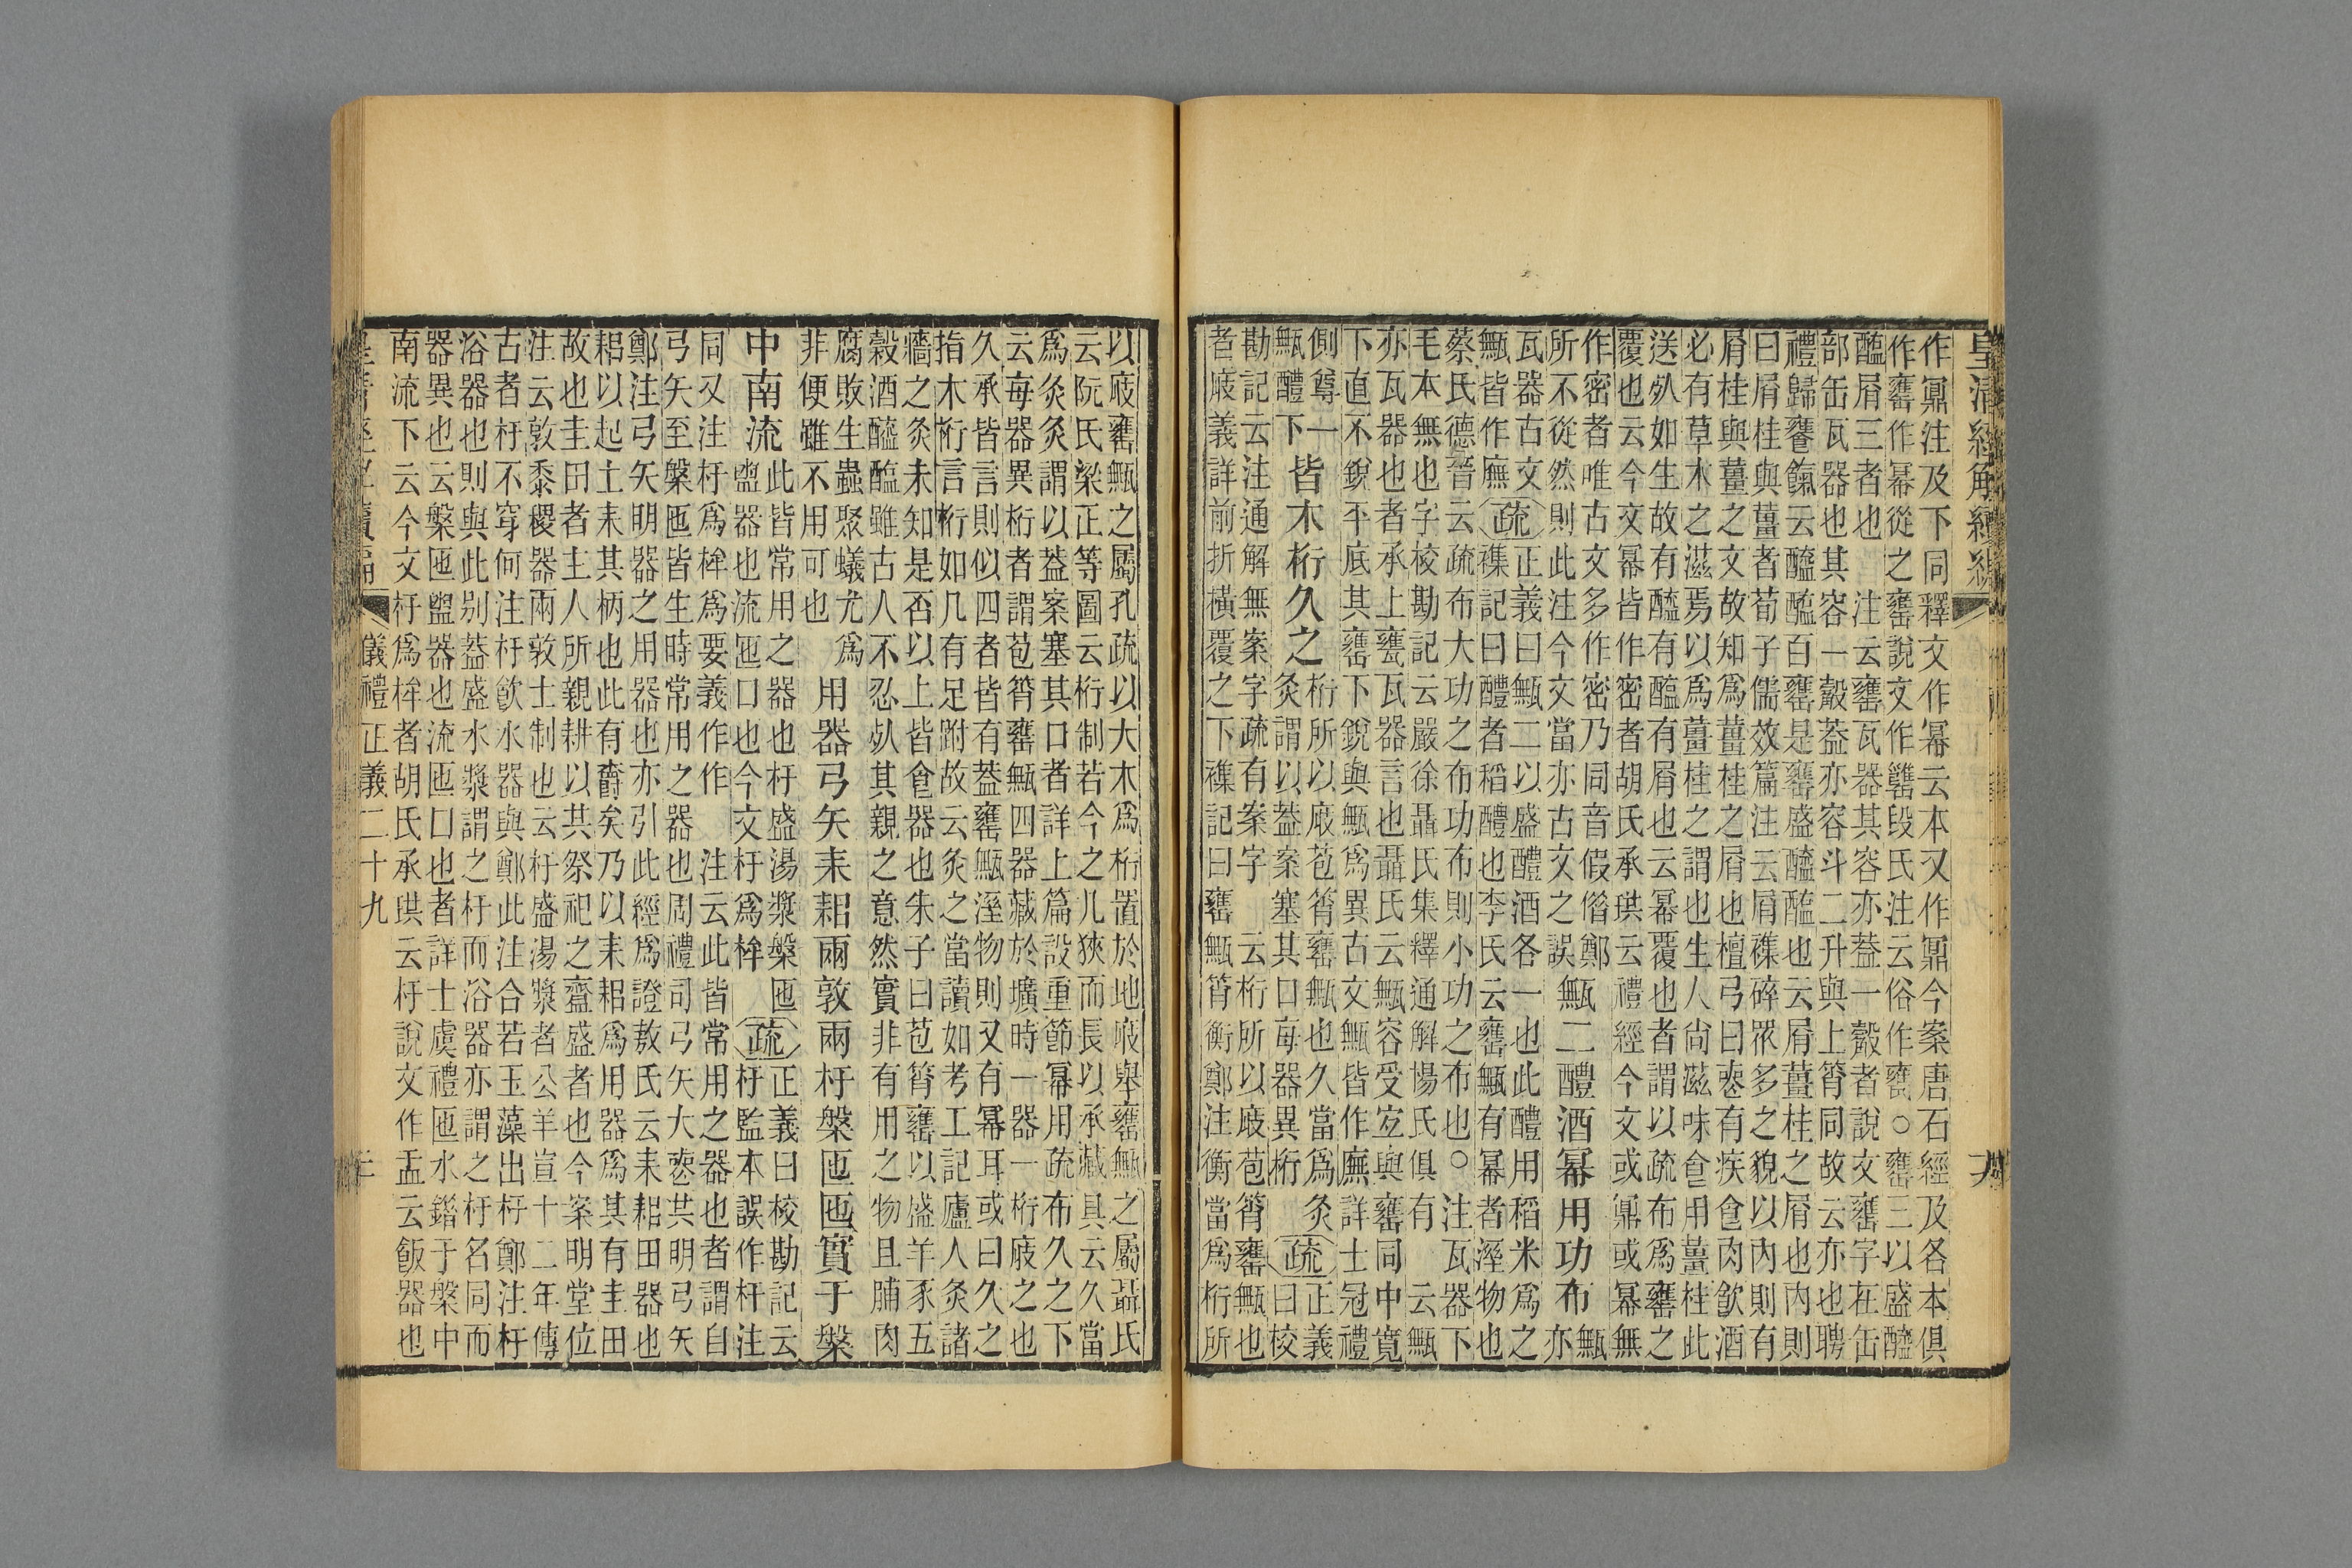 皇清經解續編
作鼏注及下同釋文作冪云本又作鼏今案唐石經及各本俱
作罋作冪從之罋說文作䍌段氏注云俗作甕○罋三以盛醯
醢屑三者也　注云罋瓦器其容亦蓋一觳者說文罋字在缶
部缶瓦器也其容一觳蓋亦容斗二升與上筲同故云亦也聘
禮歸饔餼云醯醢百罋是罋盛醯醢也云屑薑桂之屑也內則
曰屑桂與薑者荀子儒效篇注云屑雜碎眾多之貌以內則有
屑桂與薑之文故知爲薑桂之屑也檀弓曰喪有疾食肉飮酒
必有草木之滋焉以爲薑桂之謂也生人尚滋味食用薑桂此
送死如生故有醯有醢有屑也云冪覆也者謂以疏布爲罋之
覆也云今文冪皆作密者胡氏承珙云禮經今文或鼏或冪無
作密者唯古文多作密乃同音假借鄭
所不從然則此注今文當亦古文之誤
甒二醴酒冪用功布甒亦
瓦器古文
甒皆作廡
疏正義曰甒二以盛醴酒各一也此醴用稻米爲之
雜記曰醴者稻醴也李氏云罋甒有冪者溼物也
蔡氏德晉云疏布大功之布功布則小功之布也○注瓦器下
毛本無也字校勘記云嚴徐聶氏集釋通解楊氏俱有　云甒
亦瓦器也者承上甕瓦器言也聶氏云甒容受宐與罋同中寬
下直不銳平底其罋下銳與甒爲異古文甒皆作廡詳士冠禮
側尊一
甒醴下
皆木桁久之
桁所以庪苞筲罋甒也久當爲灸
灸謂以蓋案塞其口每器異桁
疏正義
曰校
勘記云注通解無案字疏有案字　云桁所以庪苞筲罋甒也
者庪義詳前折橫覆之下雜記曰罋甒筲衡鄭注衡當爲桁所
以庪罋甒之屬孔疏以大木爲桁置於地庪舉罋甒之屬聶氏
云阮氏梁正等圖云桁制若今之几狹而長以承藏具云久當
爲灸灸謂以蓋案塞其口者詳上篇設重節冪用疏布久之下
云每器異桁者謂苞筲罋甒四器藏於壙時一器一桁庪之也
久承皆言則似四者皆有蓋罋甒溼物則又有冪耳或曰久之
指木桁言桁如几有足跗故云灸之當讀如考工記廬人灸諸
牆之灸未知是否以上皆食器也朱子曰苞筲罋以盛羊豕五
穀酒醯醢雖古人不忍死其親之意然實非有用之物且脯肉
腐敗生蟲聚蟻尤爲
非便雖不用可也
用器弓矢耒耜兩敦兩杅槃匜匜實于槃
中南流
此皆常用之器也杅盛湯漿槃匜
盥器也流匜口也今文杅爲桙
疏正義曰校勘記云
杅監本誤作杆注
同又注杅爲桙爲要義作作　注云此皆常用之器也者謂自
弓矢至槃匜皆生時常用之器也周禮司弓矢大喪共明弓矢
鄭注弓矢明器之用器也亦引此經爲證敖氏云耒耜田器也
耜以起土耒其柄也此有奝矣乃以耒耜爲用器爲其有圭田
故也圭田者主人所親耕以共祭祀之齍盛者也今案明堂位
注云敦黍稷器兩敦士制也云杅盛湯漿者公羊宣十二年傳
古者杅不穿何注杅飮水器與鄭此注合若玉藻出杅鄭注杅
浴器也則與此別蓋盛水漿謂之杅而浴器亦謂之杅名同而
器異也云槃匜盥器也流匜口也者詳士虞禮匜水錯于槃中
南流下云今文杅爲桙者胡氏承珙云杅說文作盂云飯器也
儀禮正義二十九